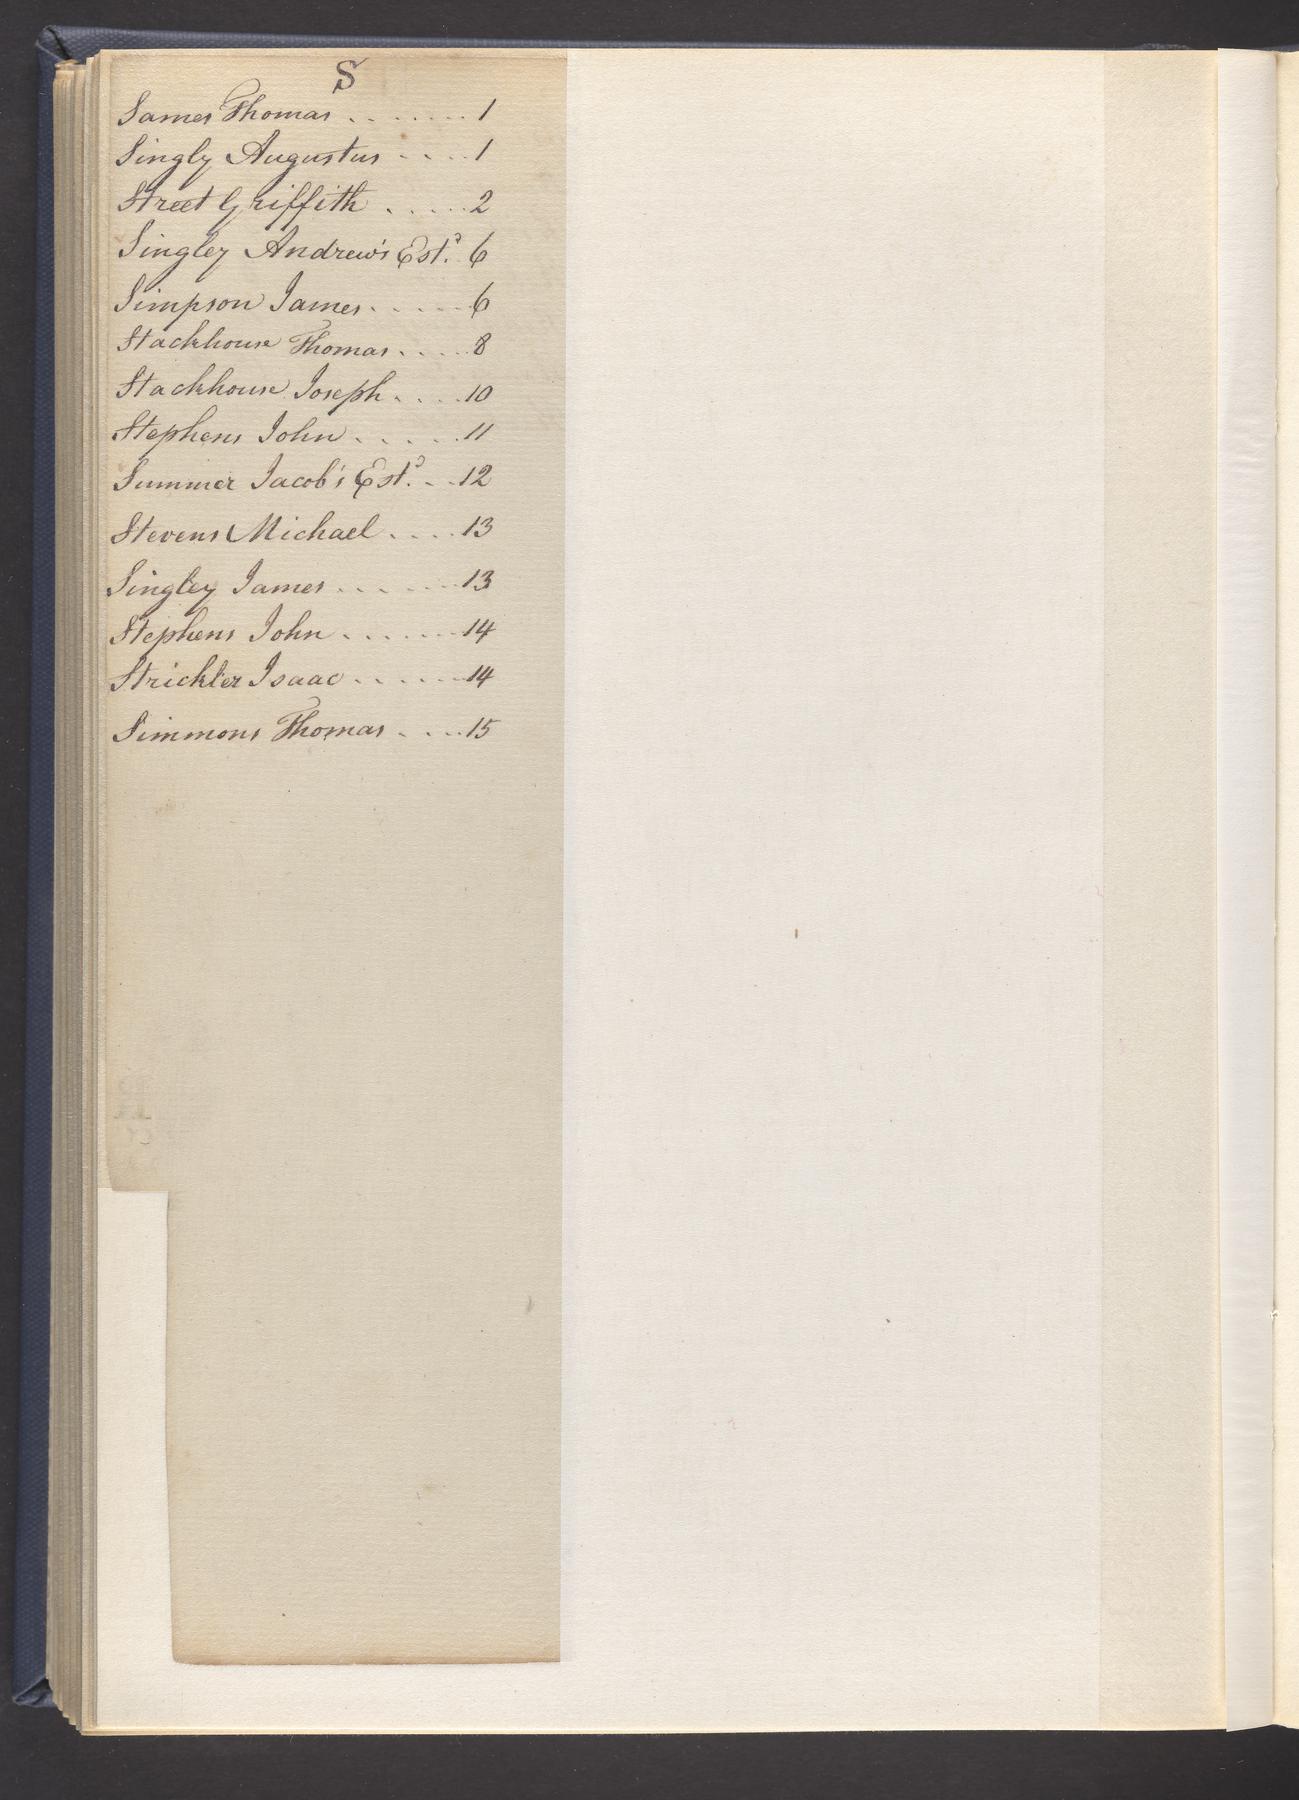 S
Sames Thomas ........ 1
Singly Augustus .... 1
Street Griffith ..... 2
Singley Andrew's Est.ᵈ 6
Simpson James ..... 6
Stackhouse Thomas .... 8
Stackhouse Joseph .... 10
Stephens John ..... 11
Summer Jacob's Est.ᵈ .. 12
Stevens Michael .... 13
Singley James ...... 13
Stephens John ....... 14
Strickler Isaac ...... 14
Simmons Thomas .... 15